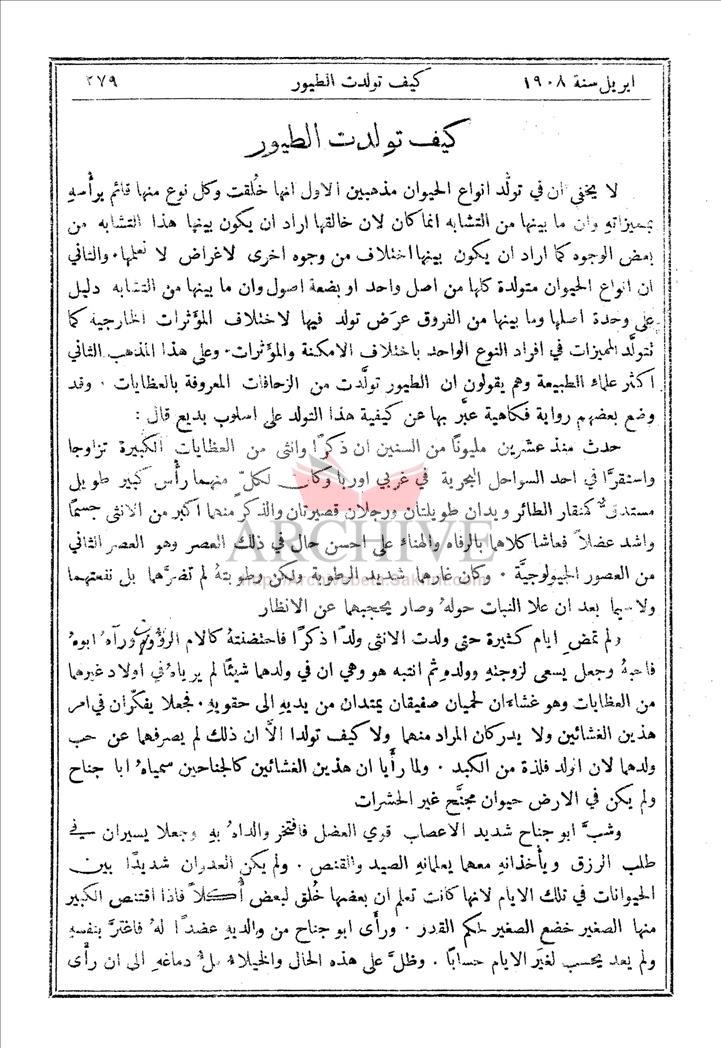 ابريل سنة ١٩٠٨ كيف تولدت الطيور ٢٧٩
كيف تولدت الطيور
لا يخفى ان في تولّد انواع الحيوان مذهبين الاول انها خُلقت وكل نوع منها قائم برأْسهِ
بمميزاتهِ وان ما بينها من التشابه انما كان لان خالقها اراد ان يكون بينها هذا التشابه من
بعض الوجوه كما اراد ان يكون بينها اختلاف من وجوه اخرى لاغراض لا نعلمها . والثاني
ان انواع الحيوان متولدة كلها من اصل واحد او بضعة اصول وان ما بينها من التشابه دليل
على وحدة اصلها وما بينها من الفروق عرَض تولد فيها لاختلاف المؤثرات الخارجية كما
تتولَّد المميزات في افراد النوع الواحد باختلاف الامكنة والمؤثرات . وعلى هذا المذهب الثاني
اكثر علماء الطبيعة وهم يقولون ان الطيور تولَّدت من الزحافات المعروفة بالعظايات . وقد
وضع بعضهم رواية فكاهية عبَّر بها عن كيفية هذا التولد على اسلوب بديع قال :
حدث منذ عشرين مليونًا من السنين ان ذكرًا وانثى من العظايات الكبيرة تزاوجا
واستقرَّا في احد السواحل البحرية في غربي اوربا وكان لكلّ منهما رأْس كبير طويل
مستدق كمنقار الطائر ويدان طويلتان ورجلان قصيرتان والذكر منهما اكبر من الانثى جسمًا
واشد عضلاً فعاشا كلاهما بالرفاه والهناء على احسن حال في ذلك العصر وهو العصر الثاني
من العصور الجيولوجيَّة . وكان غارهما شديد الرطوبة ولكن رطوبتهُ لم تضرَّهما بل نفعتهما
ولا سيما بعد ان علا النبات حولهُ وصار يحجبهما عن الانظار
ولم تمضِ ايام كثيرة حتى ولدت الانثى ولدًا ذكرًا فاحتضنتهُ كالام الرؤوم ورآهُ ابوهُ
فاحبهُ وجعل يسعى لزوجتهِ وولدهِ ثم انتبه هو وهي ان في ولدهما شيئًا لم يرياهُ في اولاد غيرهما
من العظايات وهو غشاءَان لحميان صفيقان يمتدان من يديهِ الى حقويهِ . فجعلا يفكّران في امر
هذين الغشائين ولا يدركان المراد منهما ولا كيف تولدا الاَّ ان ذلك لم يصرفهما عن حب
ولدهما لان الولد فلذة من الكبد . ولما رأَيا ان هذين الغشائين كالجناحين سمياهُ ابا جناح
ولم يكن في الارض حيوان مجنَّح غير الحشرات
وشبَّ ابو جناح شديد الاعصاب قوي العضل فافتخر والداهُ بهِ وجعلا يسيران في
طلب الرزق ويأْخذانهِ معهما يعلمانهِ الصيد والقنص . ولم يكن العدوان شديدًا بين
الحيوانات في تلك الايام لانها كانت تعلم ان بعضها خُلق لبعض أُكلاً فاذا اقتنص الكبير
منها الصغير خضع الصغير لحكم القدر . ورأَى ابو جناح من والديهِ عضدًا لهُ فاغترَّ بنفسهِ
ولم يعد يحسب لغِيَر الايام حسابًا . وظلَّ على هذه الحال والخيلاءُ ملءُ دماغهِ الى ان رأَى
ARCHIVE